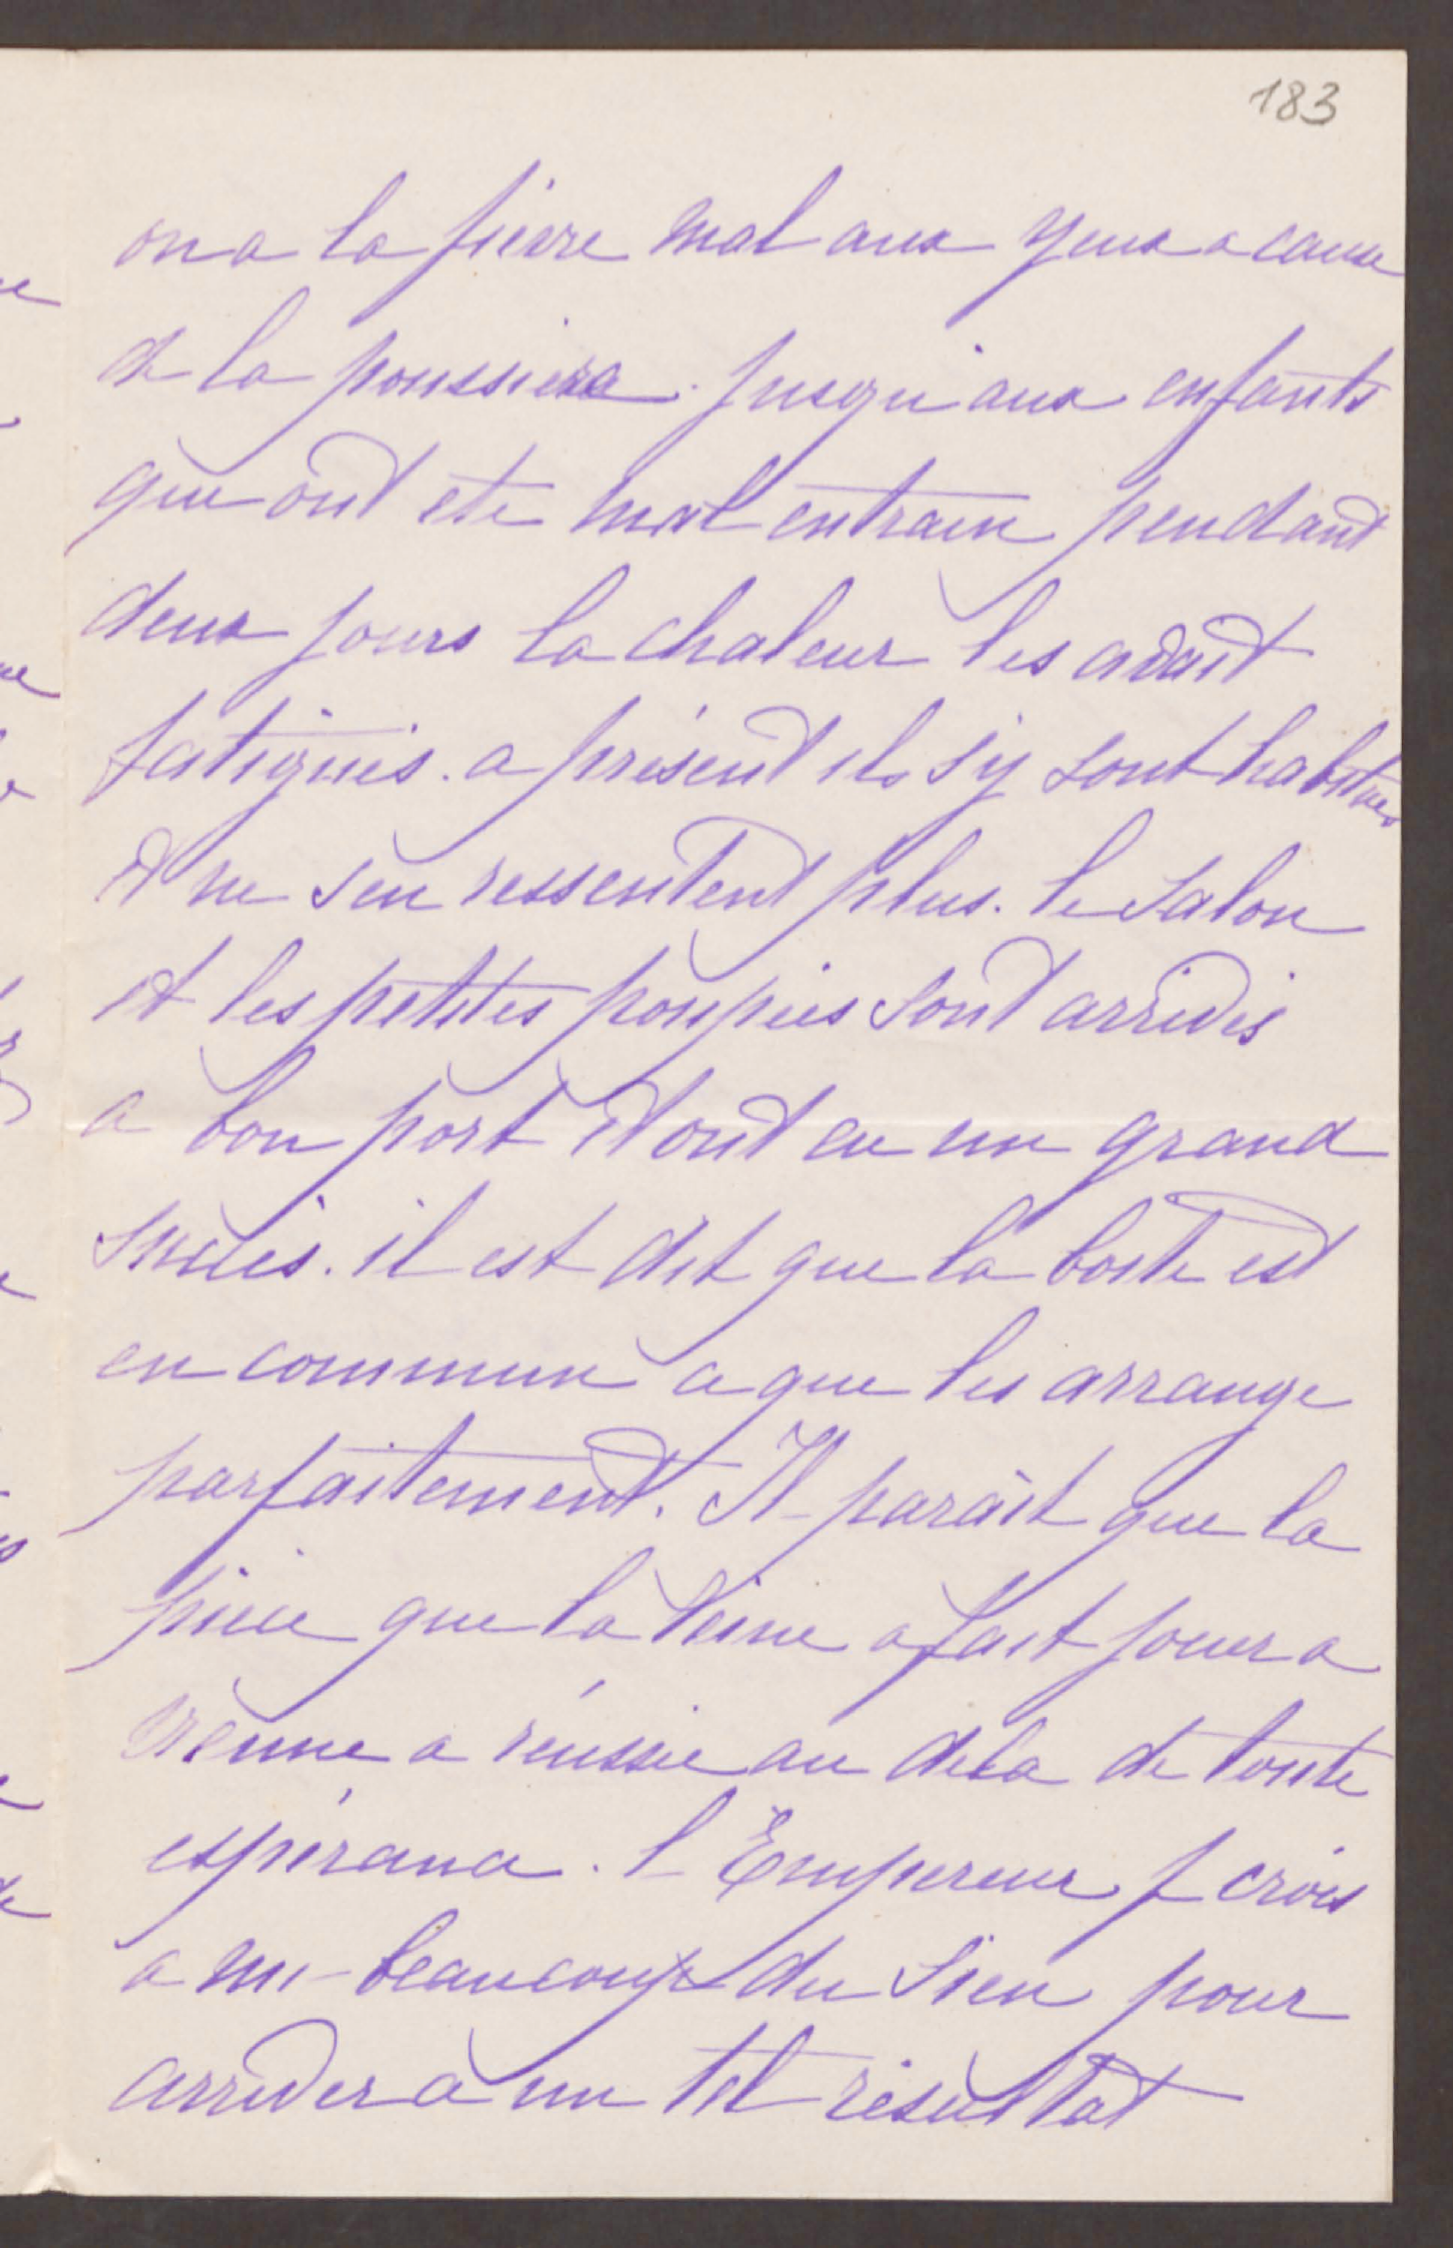 183
on a la fièvre mal aux yeux a cause
de la poussière. jusqu'aux enfants
qui ont été mal entrain pendant
deux jours la chaleur les avait
fatigués. a présent ils s'y sont habitués
et ne s'en ressentent plus. le salon
et les petites poupées sont arrivés
a bon port et ont eu un grand
succès. il est dit que la boite est
en commun ce que les arrange
parfaitement. Il parait que la
pièce que la Reine a fait jouer a
Vienne a réussie au dela de toute
espérance. l'Empereur je crois
a mi beaucoup du sien pour
arriver a un tel résultat